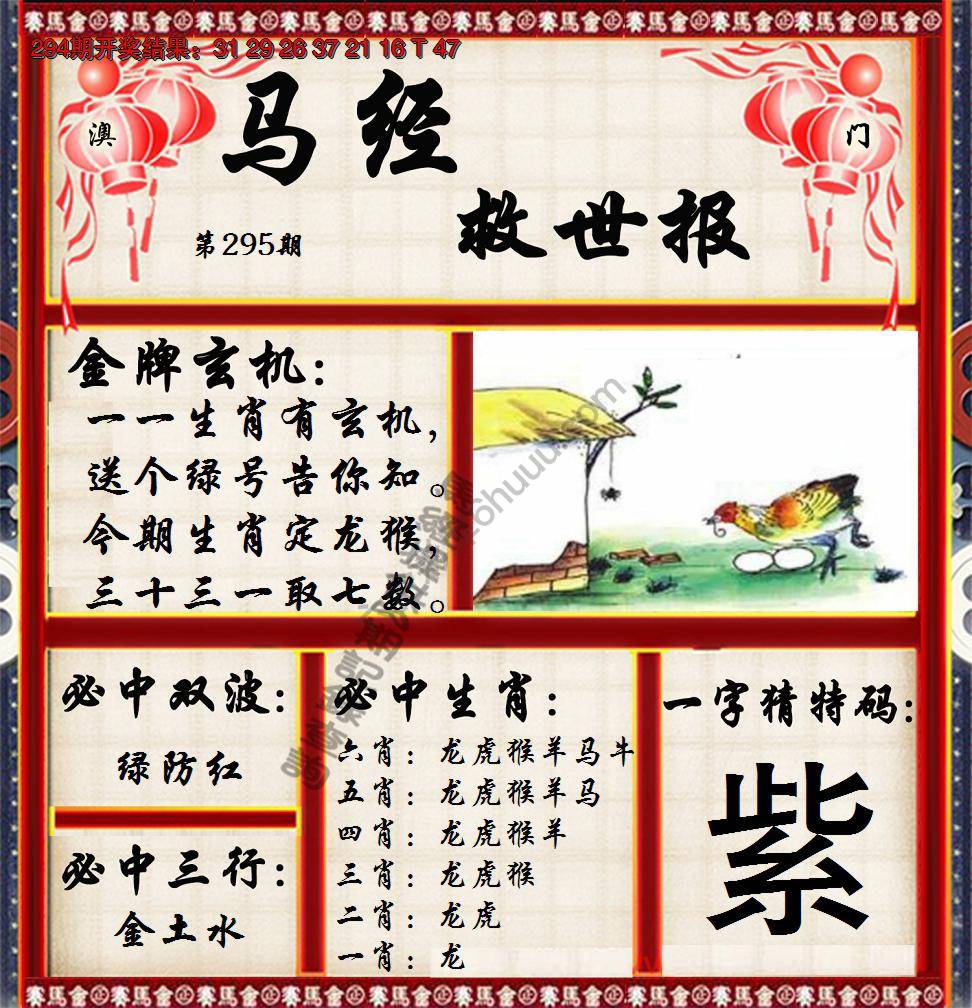 赛馬會
294期开奖结果：31 29 26 37 21 16 T 47
澳
门
马经
救世报
第295期
金牌玄机：
一一生肖有玄机，
送个绿号告你知。
今期生肖定龙猴，
三十三一取七数。
必中双波：
绿防红
必中三行：
金土水
必中生肖：
六肖：龙虎猴羊马牛
五肖：龙虎猴羊马
四肖：龙虎猴羊
三肖：龙虎猴
二肖：龙虎
一肖：龙
一字猜特码：
紫